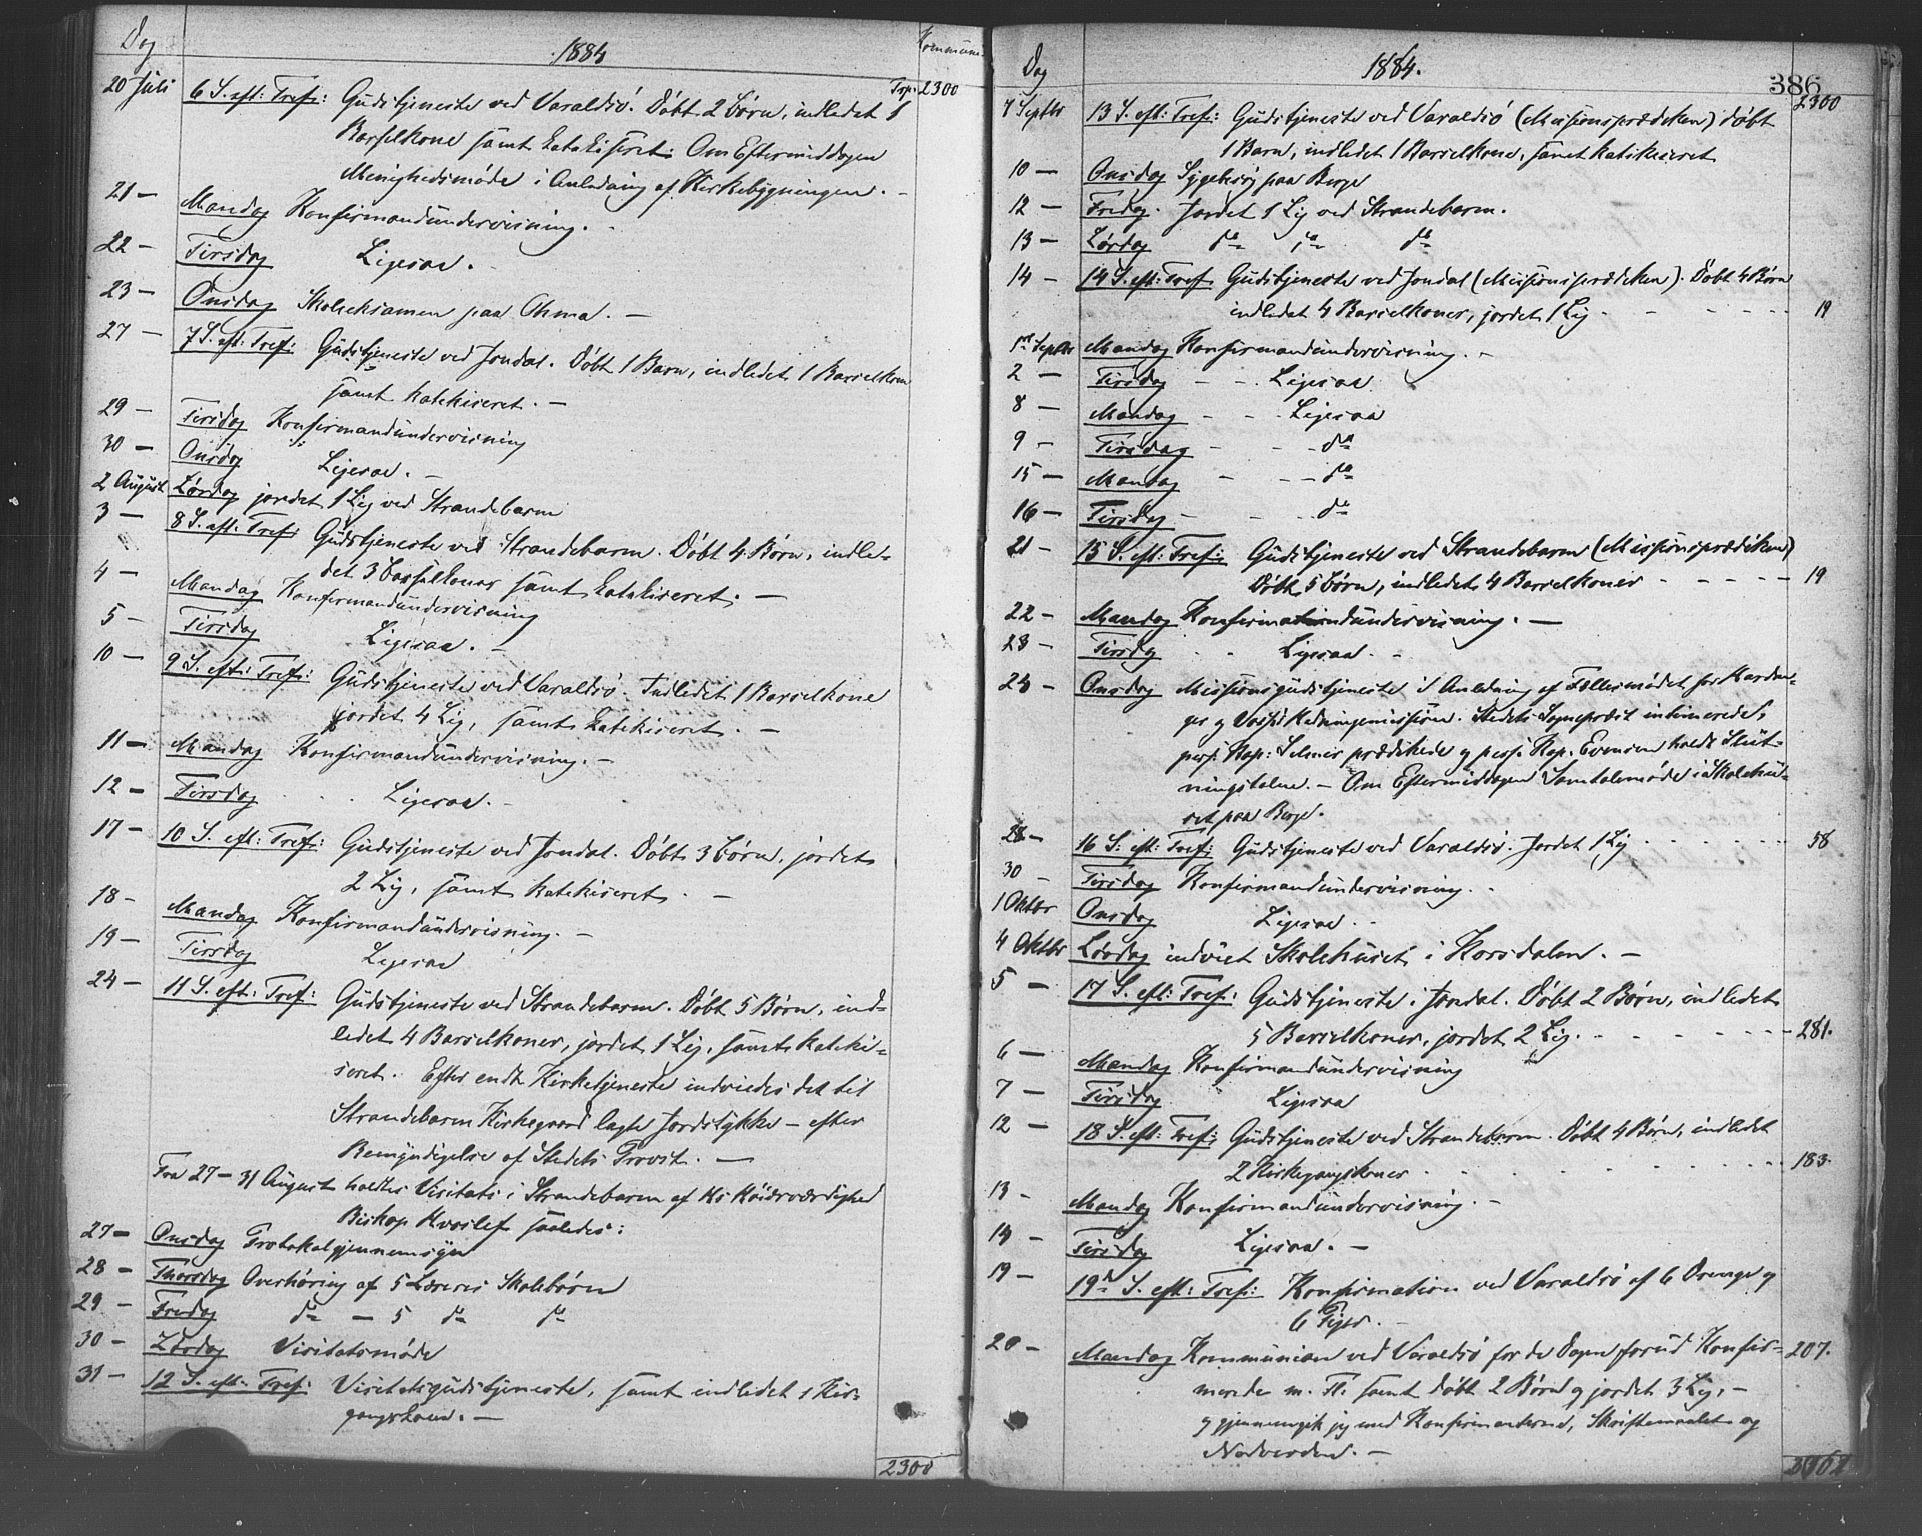 Dag
1884
Kommuni
20 Juli 6 S. eft: Tref: Gudstjeneste ved Varaldsö. Döbt 2 Börn, indledet 1 Trp: 2300
Barselkone samt katekiseret. Om Eftermiddagen
Menighedsmöde i Anledning af Kirkebygningen. –
21 – Mandag Konfirmandundervisning. –
22 – Tirsdag Ligesaa. –
23 – Onsdag Skoleeksamen paa Ohma. –
27 – 7 S. eft: Tref: Gudstjeneste ved Jondal. Döbt 1 Barn, indledet 1 Barselkone
samt katekiseret. –
29 – Tirsdag Konfirmandundervisning
30 – Onsdag Ligesaa. –
2 August Lördag jordet 1 Lig ved Strandebarm
3 – 8 S. eft: Tref: Gudstjeneste ved Strandebarm. Döbt 4 Börn, indle-
det 3 Barselkoner samt katekiseret. –
4 – Mandag Konfirmandundervisning
5 – Tirsdag Ligesaa. –
10 – 9 S. eft: Tref: Gudstjeneste ved Varaldsö. Indledet 1 Barselkone
jordet 4 Lig, samt katekiseret. –
11 – Mandag Konfirmandundervisning. –
12 – Tirsdag Ligesaa. –
17 – 10 S. eft: Tref: Gudstjeneste ved Jondal. Döbt 3 Börn, jordet
2 Lig, samt katekiseret. –
18 – Mandag Konfirmandundervisning. –
19 – Tirsdag Ligesaa
24 – 11 S. eft: Tref: Gudstjeneste ved Strandebarm. Döbt 5 Börn, ind-
ledet 4 Barselkoner, jordet 1 Lig, samt kateki-
seret. Efter endt Kirketjeneste indviedes det til
Strandebarm Kirkegaard lagte Jordstykke – efter
Bemyndigelse af Stedets Provst. –
Fra 27 – 31 August holdtes Visitats i Strandebarm af Hs Höiærværdighed
Biskop Hvoslef saaledes:
27 – Onsdag Protokolgjennemsyn
28 – Thorsdag Overhöring af 5 Læreres Skolebörn
29 – Fredag do – 5 do do
30 – Lördag Visitatsmöde
31 – 12 S. eft: Tref: Visitatsgudstjeneste, samt indledet 1 Kir-
gangskone. –
2300
Dag
1884.
386
7 Septbr 13 S. eft: Tref: Gudstjeneste ved Varaldsö (Missionsprædiken) döbt 2300
1 Barn, indledet 1 Barselkone, samt katekiseret
10 – Onsdag Sygebesög paa Berge
12 – Fredag. Jordet 1 Lig ved Strandebarm.
13 – Lördag do do do
14 – 14 S. eft: Tref. Gudstjeneste ved Jondal (Missionsprædiken). Döbt 4 Börn
indledet 4 Barselkoner, jordet 1 Lig 19
1ste Septbr Mandag Konfirmandundervisning. –
2 – Tirsdag – – Ligesaa
8 – Mandag – – Ligesaa
9 – Tirsdag – – do
15 – Mandag – – do
16 – Tirsdag – – do
21 – 15 S. eft: Tref: Gudstjeneste ved Strandebarm (Missionsprædiken)
Döbt 5 Börn, indledet 4 Barselkoner 19
22 – Mandag Konfirmandundervisning. –
23 – Tirsdg Ligesaa. –
24 – Onsdag Missionsgudstjeneste i Anledning af Fællesmödet for Hardan-
ger og Voss' Kredsningemission. Stedets Sogneprest intimerede,
pers. Kap: Selmer prædikede og pers: Kap. Evensen holdt Slut-
ningstalen. – Om Eftermiddagen Samtalemöde i Skolehu-
set paa Berge.
28 – 16 S. eft: Tref: Gudstjeneste ved Varaldsö. Jordet 1 Lig 58
30 – Tirsdag Konfirmandundervisning. –
1 Oktbr Onsdag Ligesaa. –
4 Oktbr Lördag indviet Skolehuset i Korsdalen. –
5 – 17 S. eft: Tref: Gudstjeneste i Jondal. Döbt 2 Börn, indledet
5 Barselkoner, jordet 2 Lig. 281.
6 – Mandag Konfirmandundervisning
7 – Tirsdag Ligesaa
12 – 18 S. eft: Tref: Gudstjeneste ved Strandebarm. Döbt 4 Börn, indledet
2 Kirkegangskoner 183.
13 – Mandag Konfirmandundervisning. –
14 – Tirsdag Ligesaa. –
19 – 19de S. eft: Tref: Konfirmation ved Varaldsö af 6 Drenge og
6 Piger. –
20 – Mandag Kommunion ved Varaldsö for de Dagen forud Konfir- 207.
merede m. Fl. samt döbt 2 Börn og jordet 3 Lig, –
og gjennemgik jeg med Konfirmanterne, Skriftemaalet og
Nadverden. –